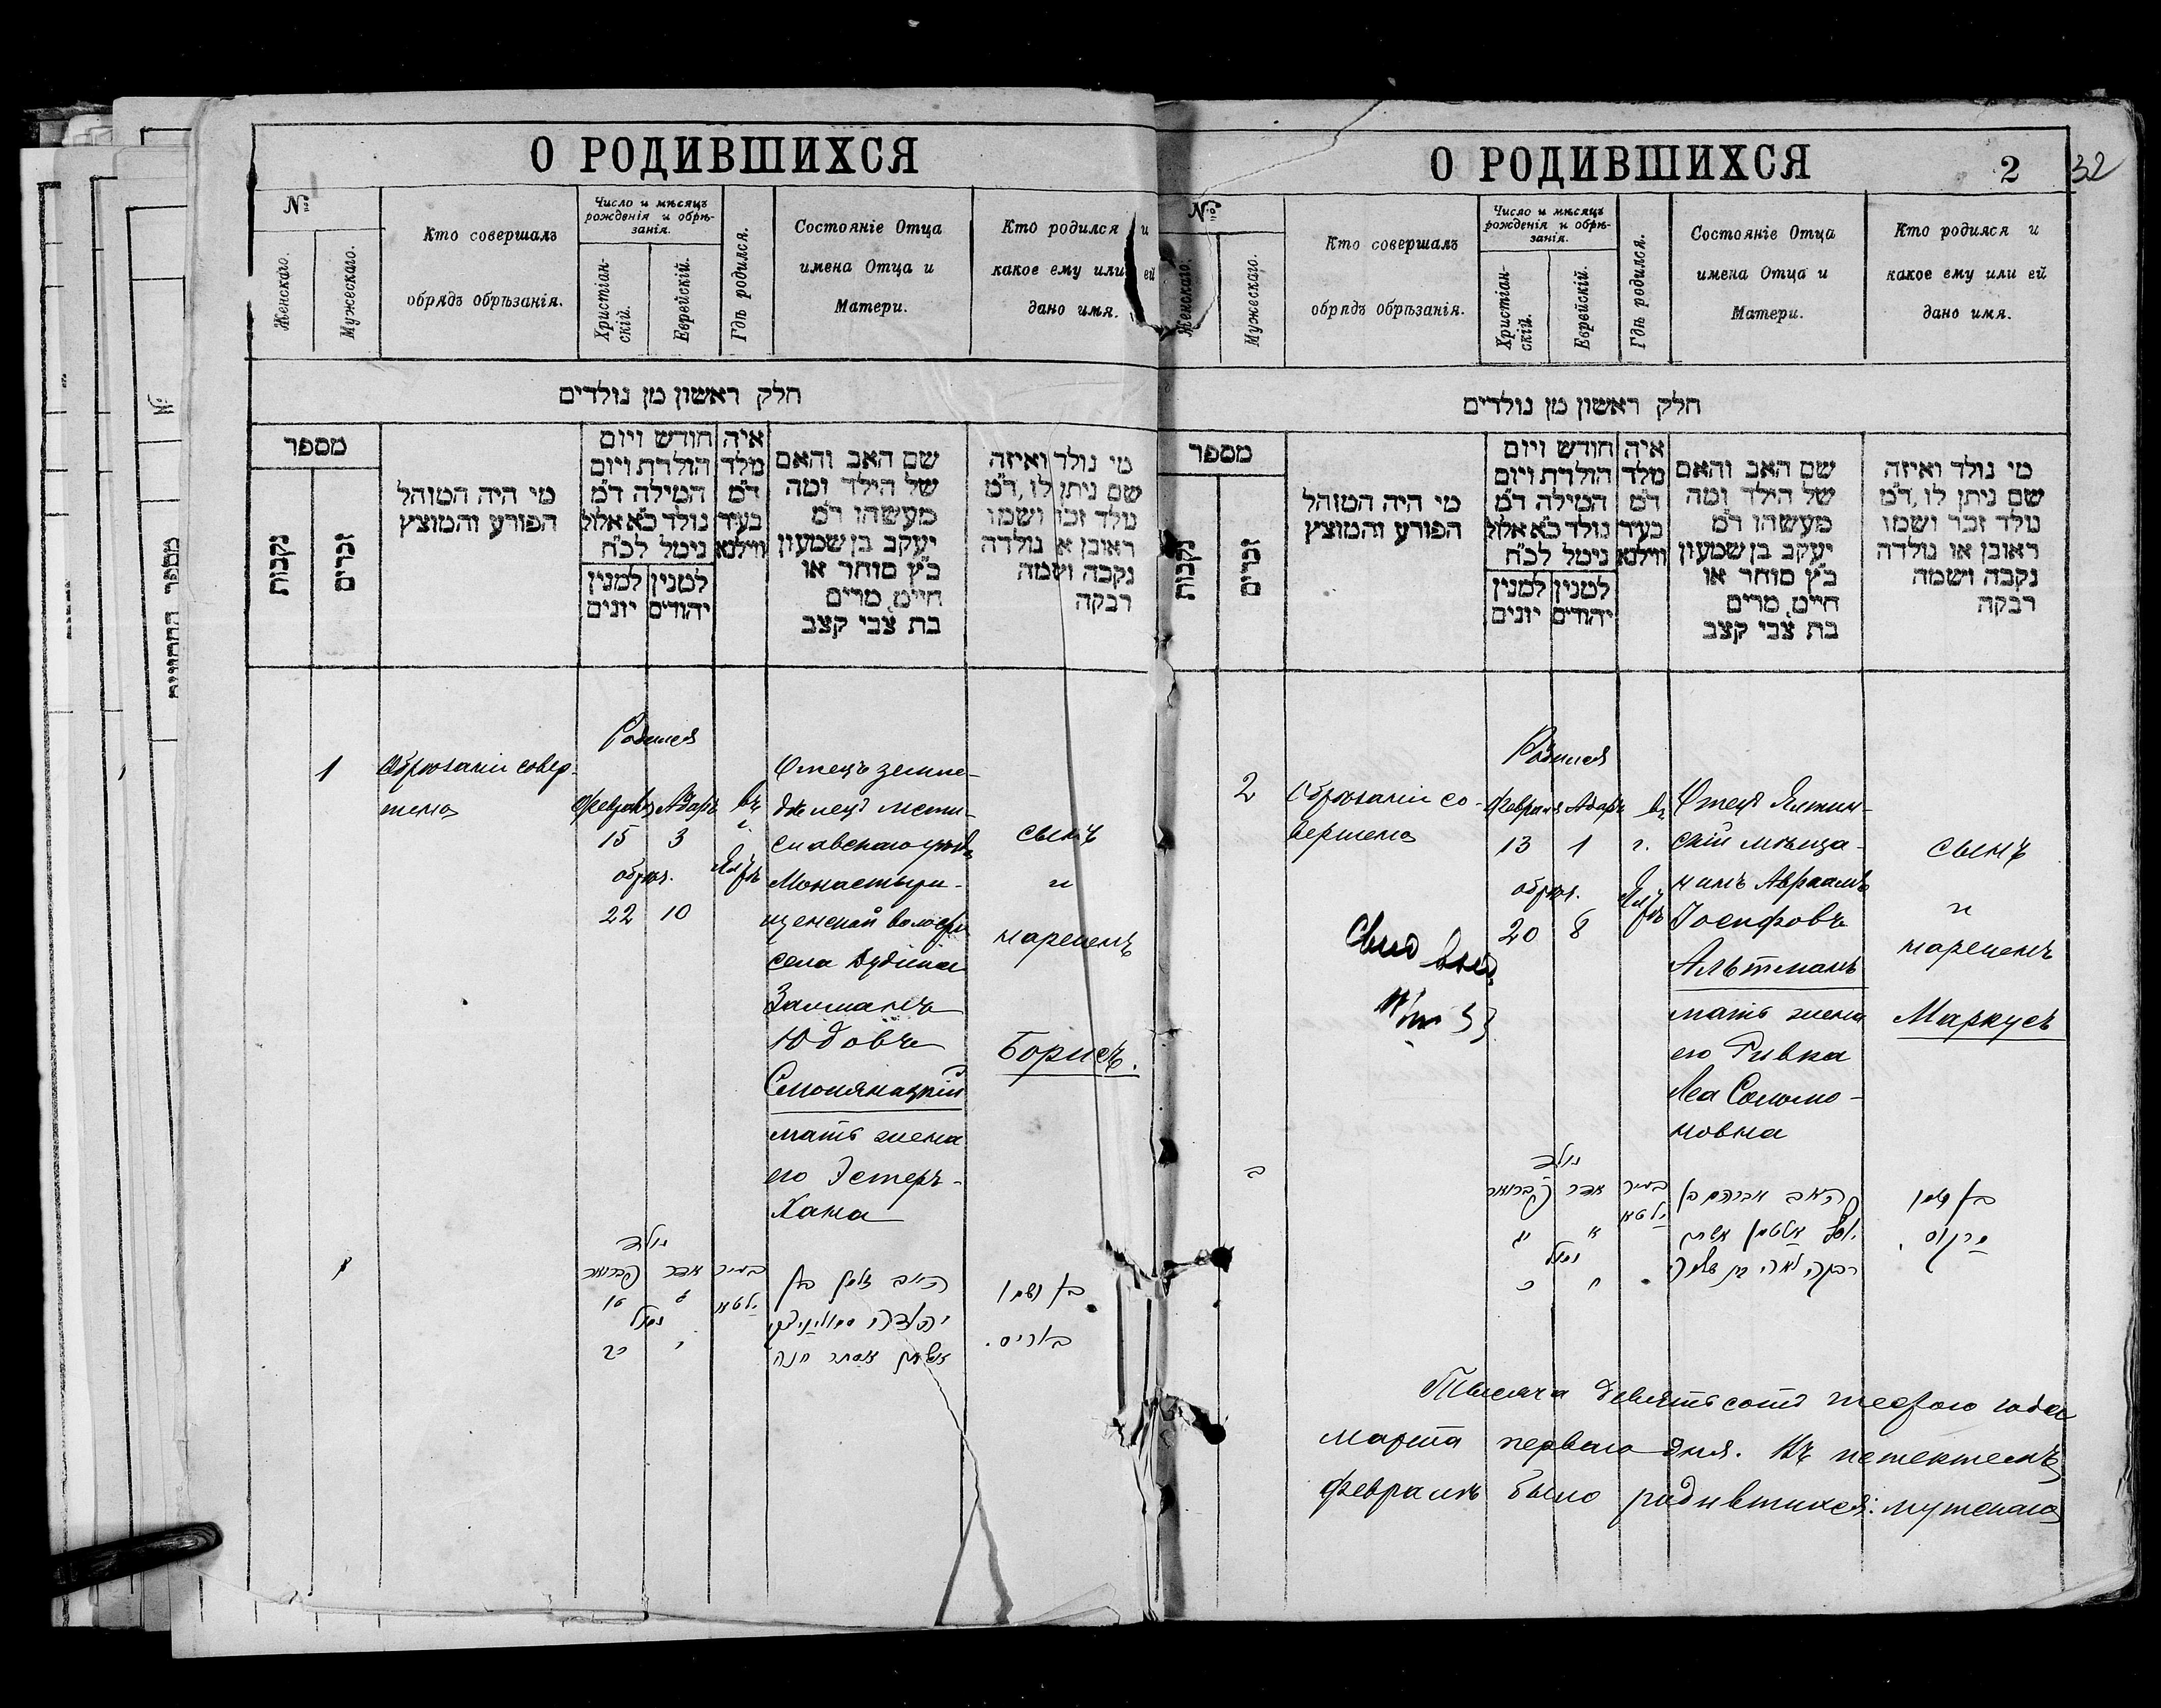 О РОДИВШИХСЯ
№
Женскаго.
Мужескаго.
Кто совершалъ
обрядъ обрѣзанія.
Число и мѣсяцъ
рожденія и обрѣ-
занія.
Христіан-
скій.
Еврейскій.
Гдѣ родился.
Состояніе Отца
имена Отца и
Матери.
Кто родился и
какое ему или ей
дано имя.
חלק ראשון מן נולדים
מספר
נקבות
זכרים
מי היה המוהל
הפורע והמוצץ
חודש ויום
הולדת ויום
המילה ד״מ
נולד כ״א אלול
נימל לכ״ח
למנין
יהודים
למנין
יונים
איה
מלד
ד״מ
בעיר
ווילנא
שם האב והאם
של הילד ומה
מעשהו ד״מ
יעקב בן שמעון
כ״ץ סוחר או
חייט, מרים
בת צבי קצב
מי נולד ואיזה
שם ניתן לו, ד״מ
נולד זכר ושמו
ראובן או נולדה
נקבה ושמה
רבקה
1
Обрѣзаніе совер-
шено
Родился
Февраль Адаръ
15 3
обрѣз.
22 10
въ
г.
Отецъ земле-
дѣлецъ Мсти-
славскаго уѣзда
Монастыр-
щенской волости
села Дудина
Залманъ
Юдовъ
Смолянацкій
мать жена
его Эстеръ-
Хана
сынъ
и
нареченъ
Борисъ.
נולד
פברואר
אדר
בעיר
האב זלמן בן
אשתו אסתר חנה
בן ושמו
באריס.
О РОДИВШИХСЯ
2
32
№
Женскаго.
Мужескаго.
Кто совершалъ
обрядъ обрѣзанія.
Число и мѣсяцъ
рожденія и обрѣ-
занія.
Христіан-
скій.
Еврейскій.
Гдѣ родился.
Состояніе Отца
имена Отца и
Матери.
Кто родился и
какое ему или ей
дано имя.
חלק ראשון מן נולדים
מספר
נקבות
זכרים
מי היה המוהל
הפורע והמוצץ
חודש ויום
הולדת ויום
המילה ד״מ
נולד כ״א אלול
נימל לכ״ח
למנין
יהודים
למנין
יונים
איה
מלד
ד״מ
בעיר
ווילנא
שם האב והאם
של הילד ומה
מעשהו ד״מ
יעקב בן שמעון
כ״ץ סוחר או
חייט, מרים
בת צבי קצב
מי נולד ואיזה
שם ניתן לו, ד״מ
נולד זכר ושמו
ראובן או נולדה
נקבה ושמה
רבקה
2
Обрѣзаніе со-
вершено
Родился
Февраля Адаръ
13 1
обрѣз.
20 8
въ
г.
Отецъ Ялтин-
скій мѣща-
нинъ Авраамъ
Іосифовъ
Альтманъ
мать жена
его Ривка
Леа Соломо-
новна
сынъ
и
нареченъ
Маркусъ
ב
נולד
פברואר
אדר
בעיר
האב אברהם בן
יוסף אלטמן אשתו
רבקה לאה בת שלמה
בן ושמו
מרקוס.
Тысяча девятьсотъ шестого года
марта перваго дня. Въ истекшемъ
февралѣ было родившихся: мужскаго